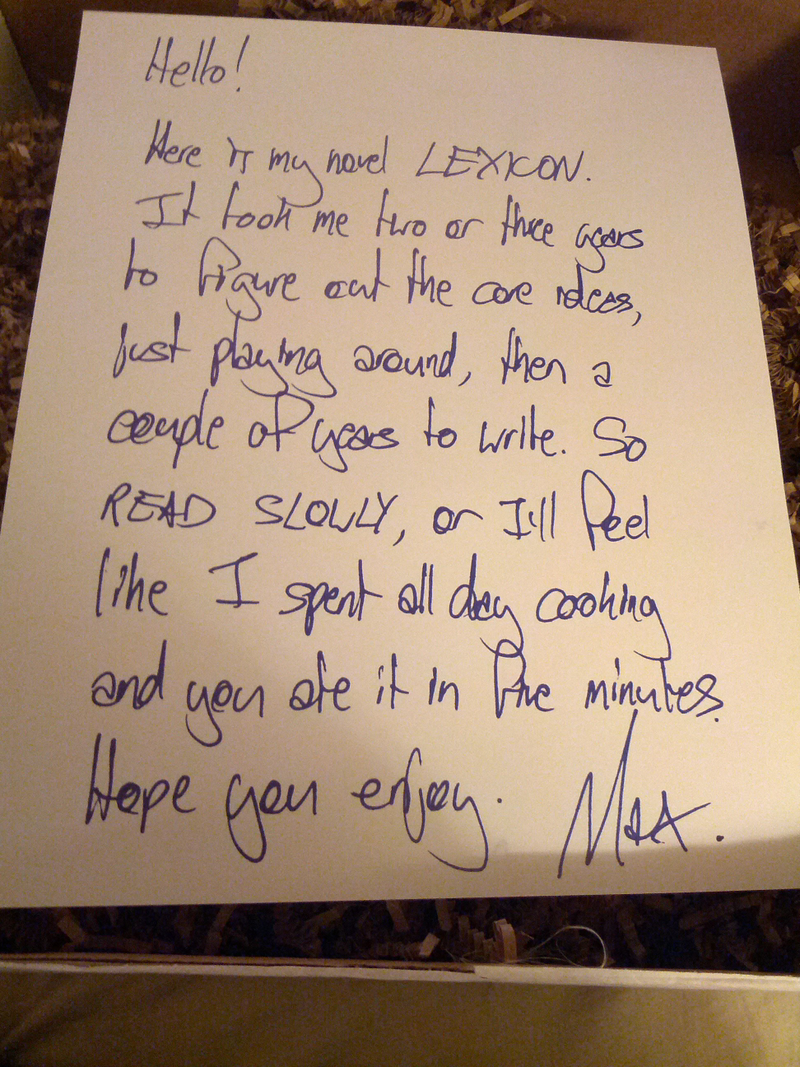 Hello!
Here is my novel LEXICON.
It took me two or three years
to figure out the core ideas,
just playing around, then a
couple of years to write. So
READ SLOWLY, or I'll feel
like I spent all day cooking
and you ate it in five minutes.
Hope you enjoy. Max.